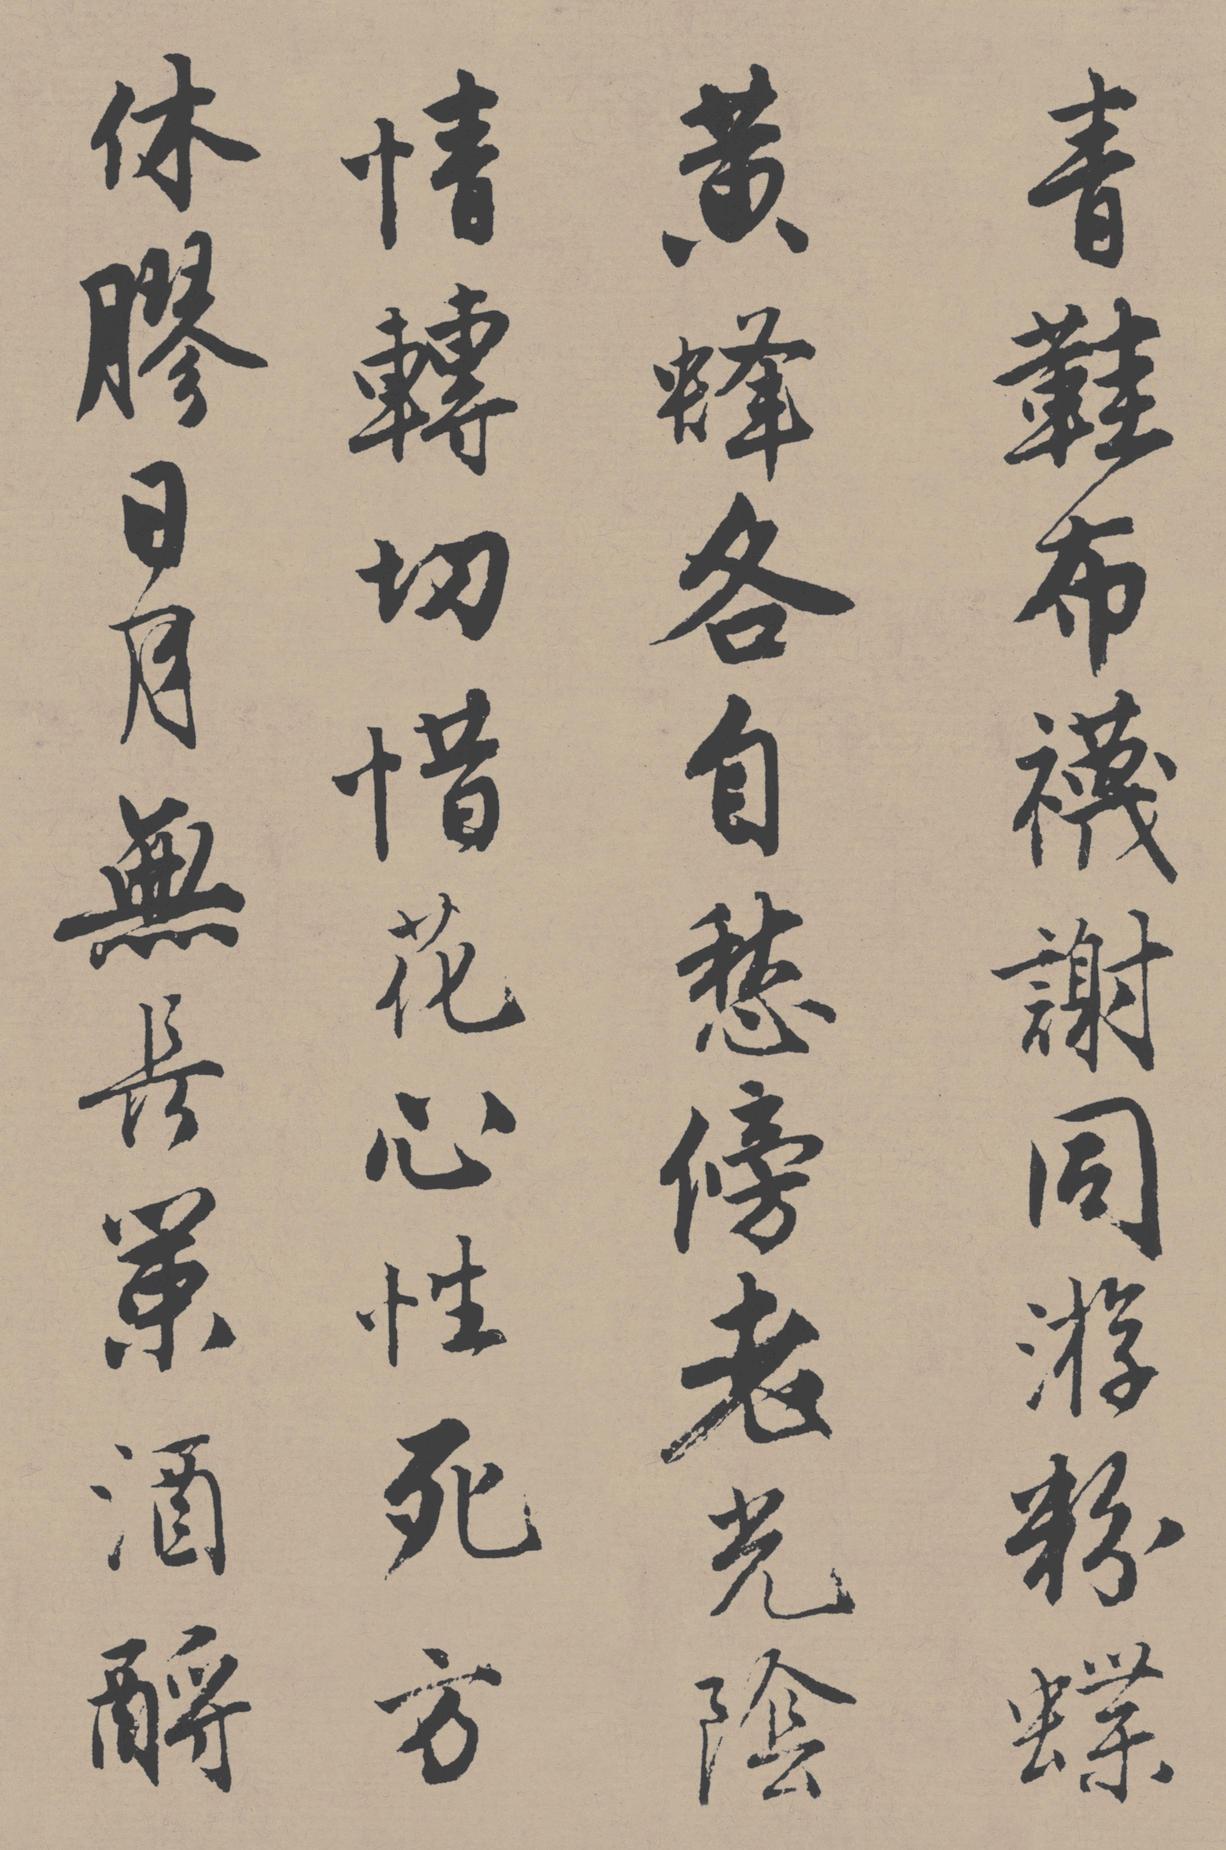 青鞵布襪謝同游粉蝶
黃蜂各自愁傍老光陰
情轉切惜花心性死方
休膠日月無長策酒酹